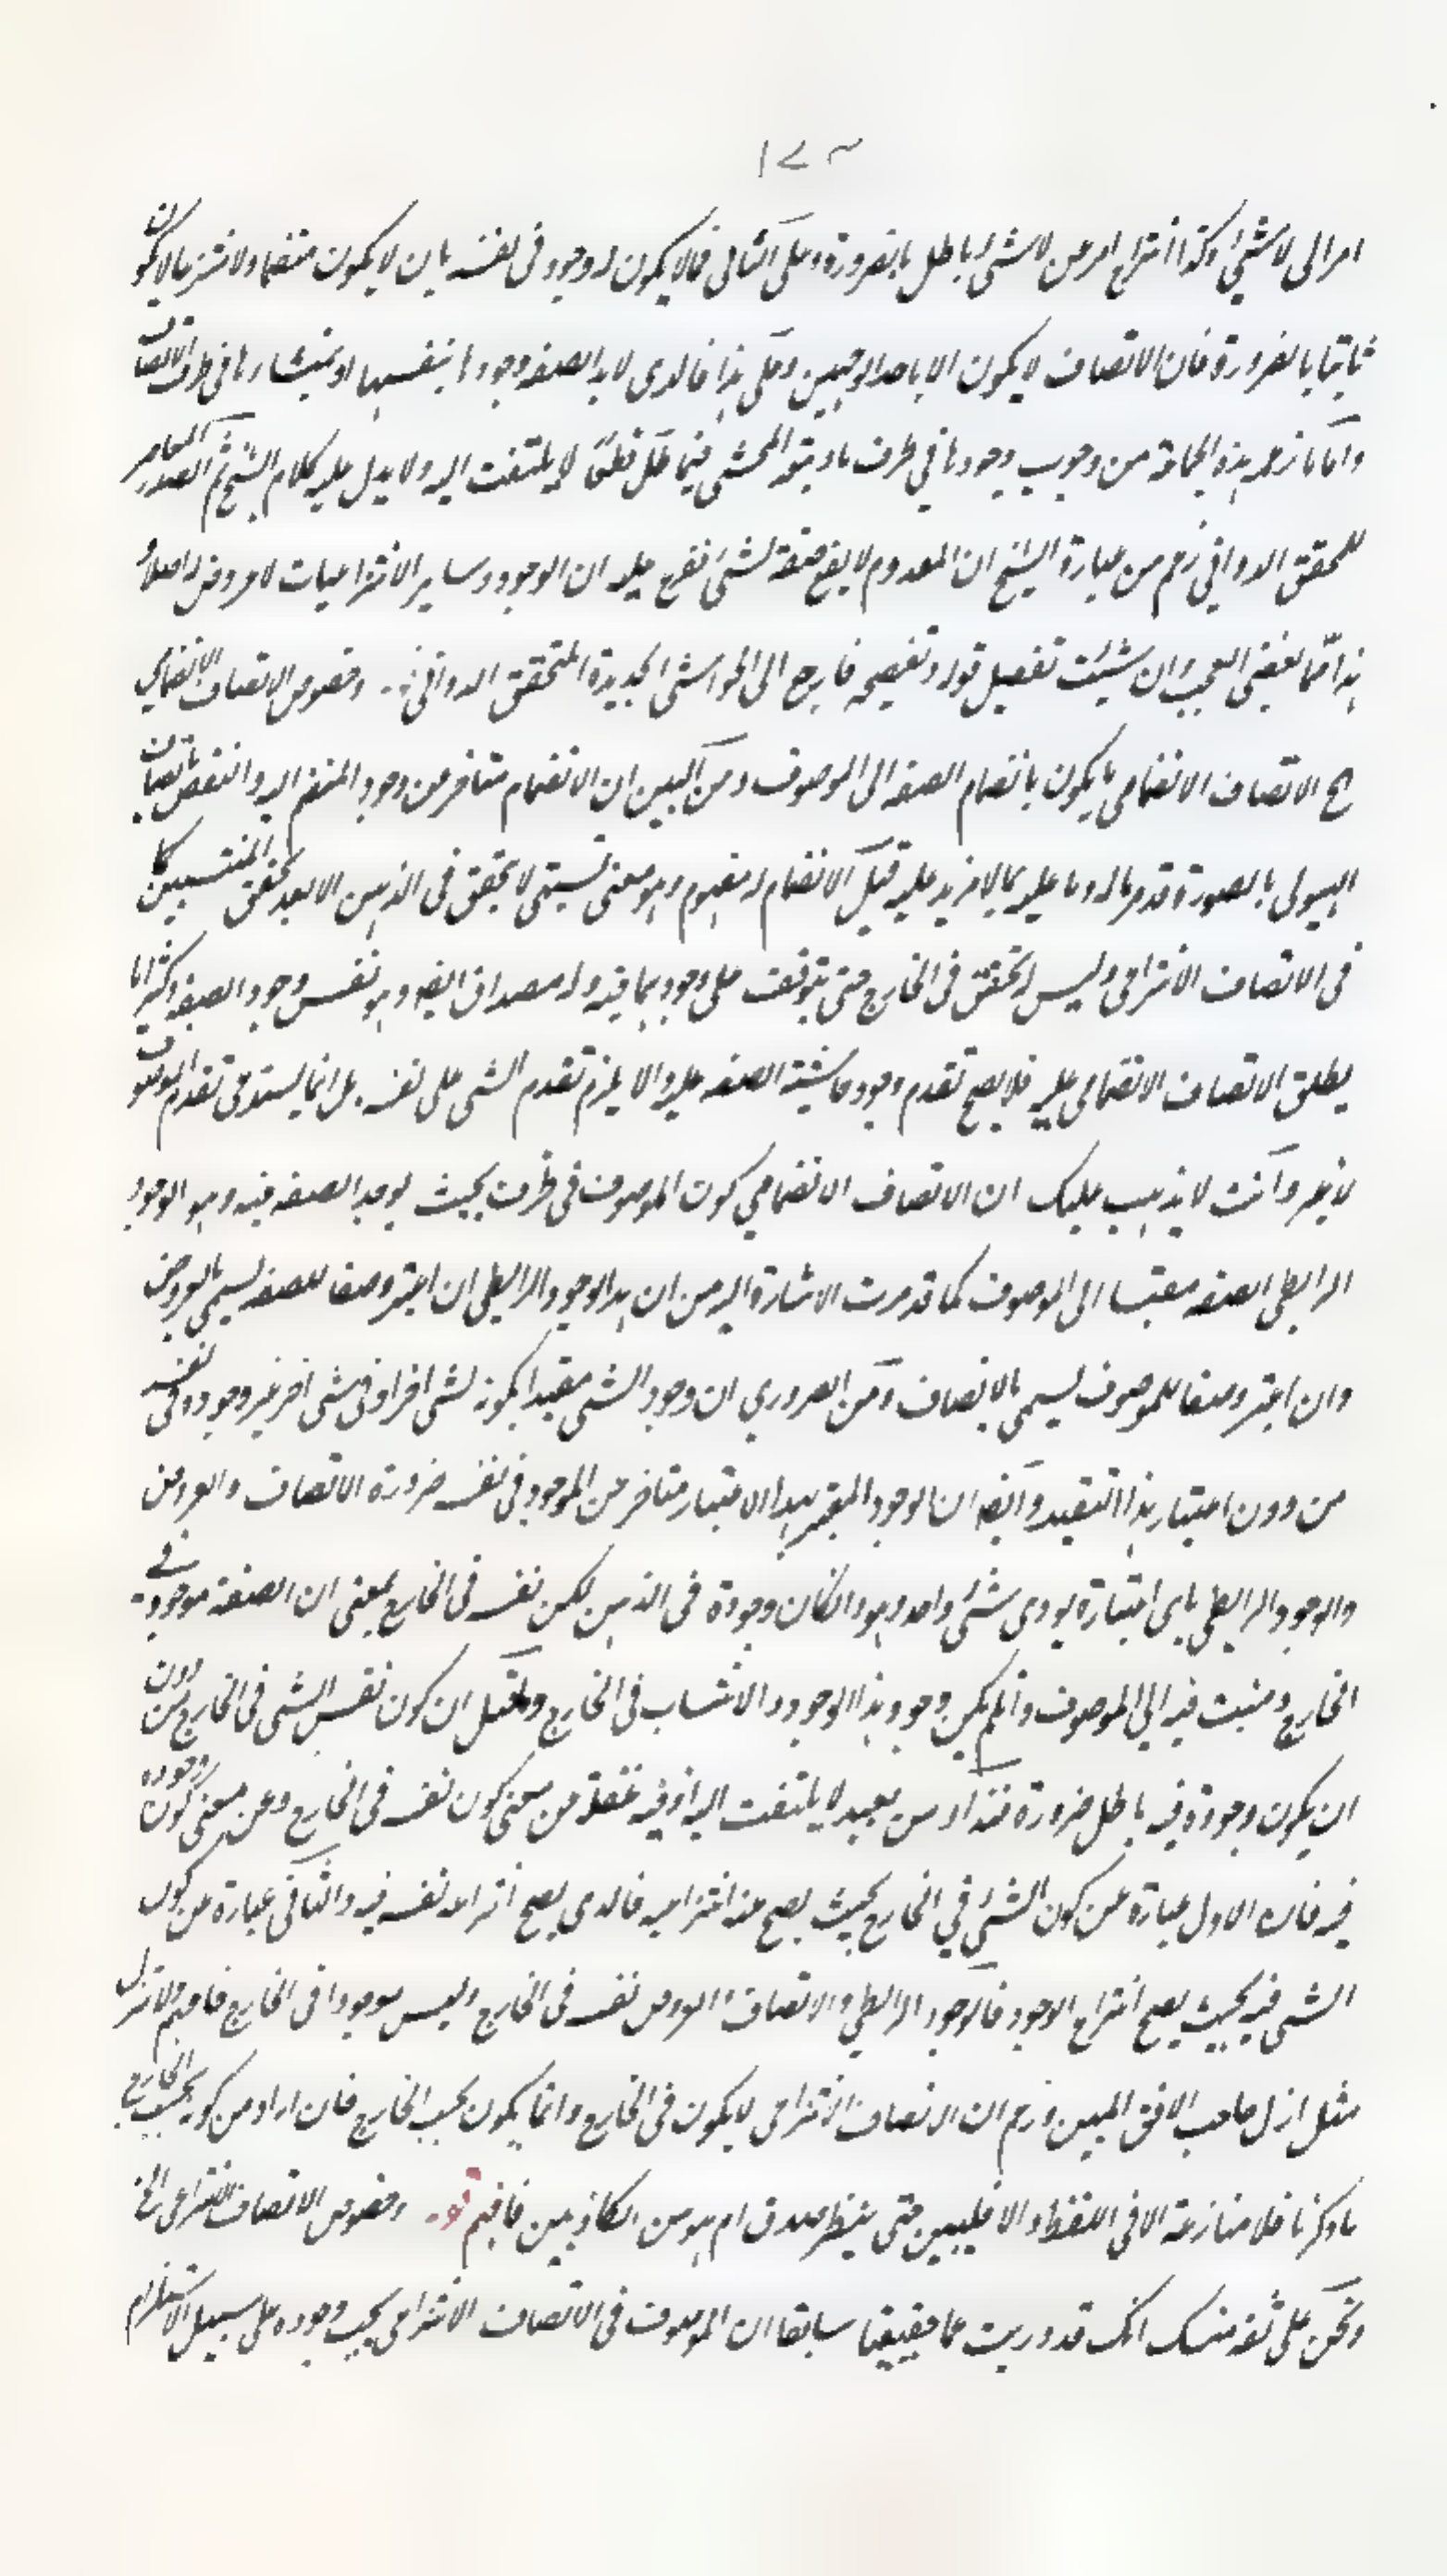 ١٧٣
امر الى لا شئ وكذا انتزاع امر من لا شئ باطل بالضرورة وعلى الثانى فما لا يكون له وجود فى نفسه بان لا يكون منضما ولا منتزعا لا يكون
ثابتا بالضرورة فان الاتصاف لا يكون الا باحد الوجهين وعلى هذا فالذى لا بد للصفه وجودها بنفسها او بمنشارها فى ظرف الاتصاف
واما ما زعم هذه الجماعة من وجوب وجودها في ظرف ما وتبعه المحشى فباطل قطعًا لا يلتفت اليه ولا يدل عليه كلام الشيخ ثم الصدر المعاصر
للمحقق الدوانى زعم من عبارة الشيخ ان المعدوم لا يقع صفة لشئ ففرع عليه ان الوجود وساير الانتزاعيات لا عروض له اصلاً
هذا مما يفضى العجب وان شئت تفصيل قوله وتفضيحه فارجع الى الحواشى الجديدة للمحقق الدوانى قوله وخصوص الاتصاف الانضمامي
الخ الاتصاف الانضمامى ما يكون بانضمام الصفه الى الموصوف ومن البين ان الانضمام متاخر من وجود المنضم اليه والنقض باتصاف
الهيولى بالصورة قد مر ما له وما عليه بما لا مزيد عليه قيل الانضمام له مفهوم وهو معنى نسبتى لا يتحقق فى الذهن الا بعد تحقق المنتسبين كما
فى الاتصاف الانتزاعى وليس له تحقق فى الخارج حتى يتوقف على وجود حاشيتيه وله مصداق ايضا وهو نفس وجود الصفه وكثيرا ما
يطلق الاتصاف الانضمامى عليه فلا يصح تقدم وجود حاشية الصفه عليه والا يلزم تقدم الشى على نفسه بل انما يستدعى تقدم الموصوف
لا غير وانت لا يذهب عليك ان الاتصاف الانضمامي كون الموصوف فى ظرف بحيث يوجد الصفه فيه وهو الوجود
الرابطى للصفه مقيسا الى الموصوف كما قد مرت الاشارة اليه من ان هذا الوجود الرابطى ان اعتبر وصفا للصفه يسمى بالعروض
وان اعتبر وصفا للموصوف يسمى بالاتصاف ومن الضروري ان وجود الشى مقيدا بكونه لشى اخر او فى شى اخر غير وجوده فى نفسه
من دون اعتبار هذا التقييد وايضا ان الوجود المعتبر بهذا الاعتبار متاخر عن الوجود فى نفسه ضرورة الاتصاف والعروض
والوجود الرابطى باى اعتبارة يودى شئ واحد وهو وان كان وجوده فى الذهن لكن نفسه فى الخارج بمعنى ان الصفة موجودة في
الخارج ومنبت فيه الى الموصوف وان لم يكن وجود هذا الوجود والانتساب فى الخارج وما قيل ان كون نفس الشى فى الخارج من دون
ان يكون وجوده فيه باطل ضرورة فنداء من بعيد لا يلتفت اليه اذ فيه غفلة من معنى كون نفسه فى الخارج وعن معنى كون وجوده
فيه فان الاول عبارة عن كون الشئ في الخارج بحيث يصح عنه انتزاعيه فالذى يصح انتزاعه نفسه فيه والثانى عبارة عن كون
الشى فيه بحيث يصح انتزاع الوجود فالوجود الرابطى والاتصاف والعروض نفسه فى الخارج وليس موجودا فى الخارج فافهم ولا تزل
مثل ازل صاحب الافق المبين وزعم ان الاتصاف الانتزاعى لا يكون فى الخارج وانما يكون بحسب الخارج فان اراد من كونه بحسب الخارج
ما ذكرنا فلا منازعة الا فى اللفظ والا فليبين حتى ينظر صدق ام هو من الكاذبين فافهم قوله وخصوص الاتصاف الانتزاعى الخ
ونحن على ثقه منك انك قد دريت مما حققنا سابقا ان الموصوف فى الاتصاف الانتزاعى يجب وجوده على سبيل الاستلزام